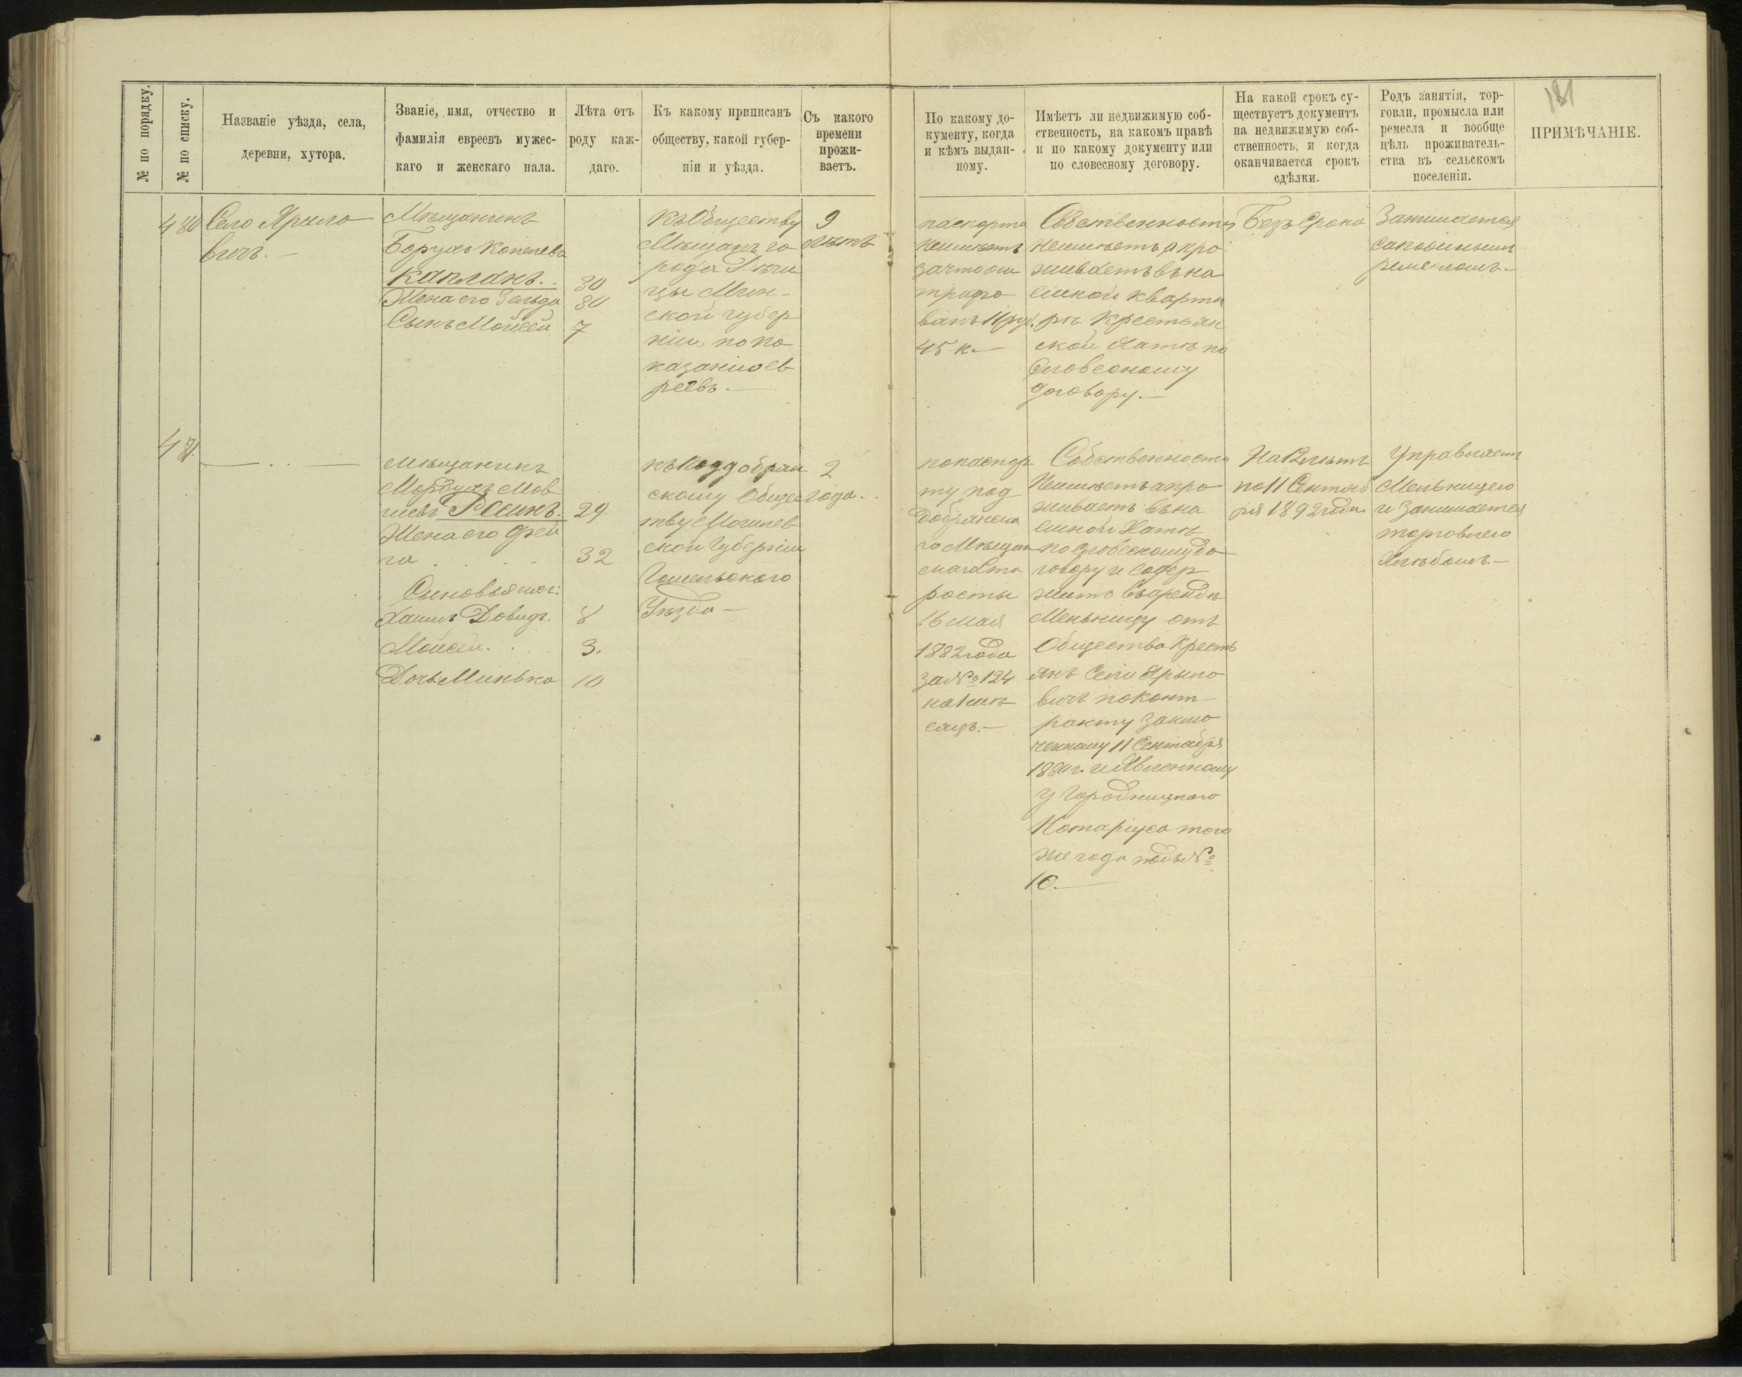 181
№ по порядку.
№ по списку.
Названіе уѣзда, села,
деревни, хутора.
Званіе, имя, отчество и
фамилія евреевъ мужес-
каго и женскаго пала.
Лѣта отъ
роду каж-
даго.
Къ какому приписанъ
обществу, какой губер-
ніи и уѣзда.
Съ какого
времени
прожи-
ваетъ.
По какому до-
кументу, когда
и кѣмъ выдан-
ному.
Имѣетъ ли недвижимую соб-
ственность, на какомъ правѣ
и по какому документу или
по словесному договору.
На какой срокъ су-
ществуетъ документъ
на недвижимую соб-
ственность, и когда
оканчивается срокъ
сдѣлки.
Родъ занятія, тор-
говли, промысла или
ремесла и вообще
цѣль проживатель-
ства въ сельскомъ
поселеніи.
ПРИМѢЧАНІЕ.
480
Село Ярыло
вичъ. —
Мѣщанинъ
Борухъ Копелева
Капланъ.
Жена его Зельда
Сынъ Мойсей
30
30
7
Къ Обществу
Мѣщанъ го
рода Рѣчи
цы Мин-
ской губер
ніи, по по
казанію ев
реевъ. —
9
лѣтъ
паспорта
неимѣетъ
зачто ош
трафо
ванъ 1 руб.
45 к. —
Собственности
неимѣетъ а про
живаетъ въ на
емной кварти
рѣ крестьян
ской хатѣ по
словесному
договору. —
Безъ срока
Занимается
сапожнымъ
ремесломъ. —
481
— . . —
Мѣщанинъ
Мордухъ Мов
шевъ
29
Жена его Фей
га
32
Сыновья его:
Хаимъ Довидъ.
8
Мойсей.
3.
Дочь Минька
10
къ Поддобрян
скому Общес
тву Могилев
ской Губерніи
Гомельскаго
Уѣзда —
2
года.
по паспор
ту под
добрянска
го Мѣщан
скаго Ста
росты
16 мая
1882 года
за № 124
Собственности
Неимѣетъ а про
живаетъ въ на
емной Хатѣ
по словесному до
говору и содер
житъ въ арендѣ
Мельницу отъ
Общества Кресть
янъ Села Ярыло
вичъ по конт
ракту заклю
ченному 11 Сентября
1880 г. и явленному
у Городницкаго
Нотаріуса того
же года подъ №
10. —
На 12 лѣтъ
по 11 Сентяб
ря 1892 года
Управляетъ
Мельницею
и занимается
торговлею
хлѣбомъ. —